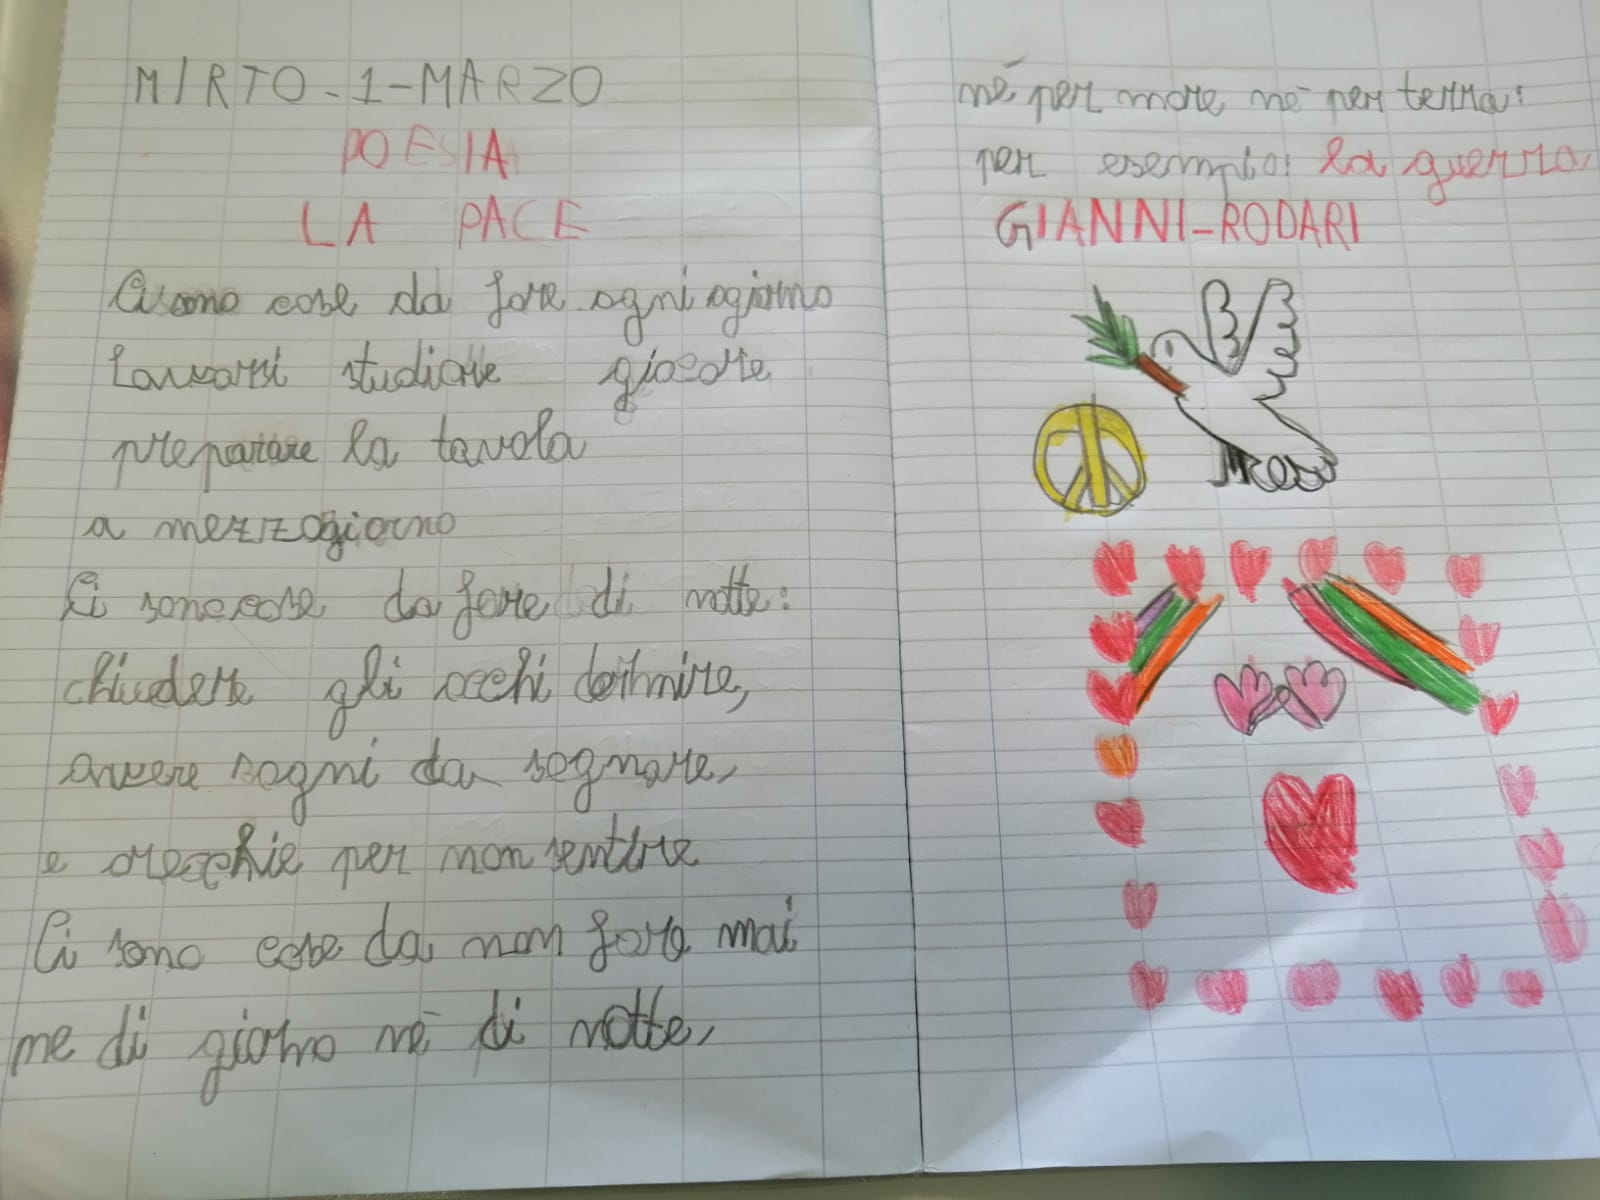 MIRTO - 1 - MARZO
POESIA
LA PACE
Ci sono cose da fare ogni ogiorno
Lavarsi studiare giocare
preparare la tavola
a mezzogiorno
Ci sono cose da fare di notte:
chiudere gli occhi dormire,
avere sogni da sognare,
e orecchie per non sentire
Ci sono cose da non fare mai
ne di giorno nè di notte,
nè per mare nè per terra:
per esempio: la guerra
GIANNI-RODARI